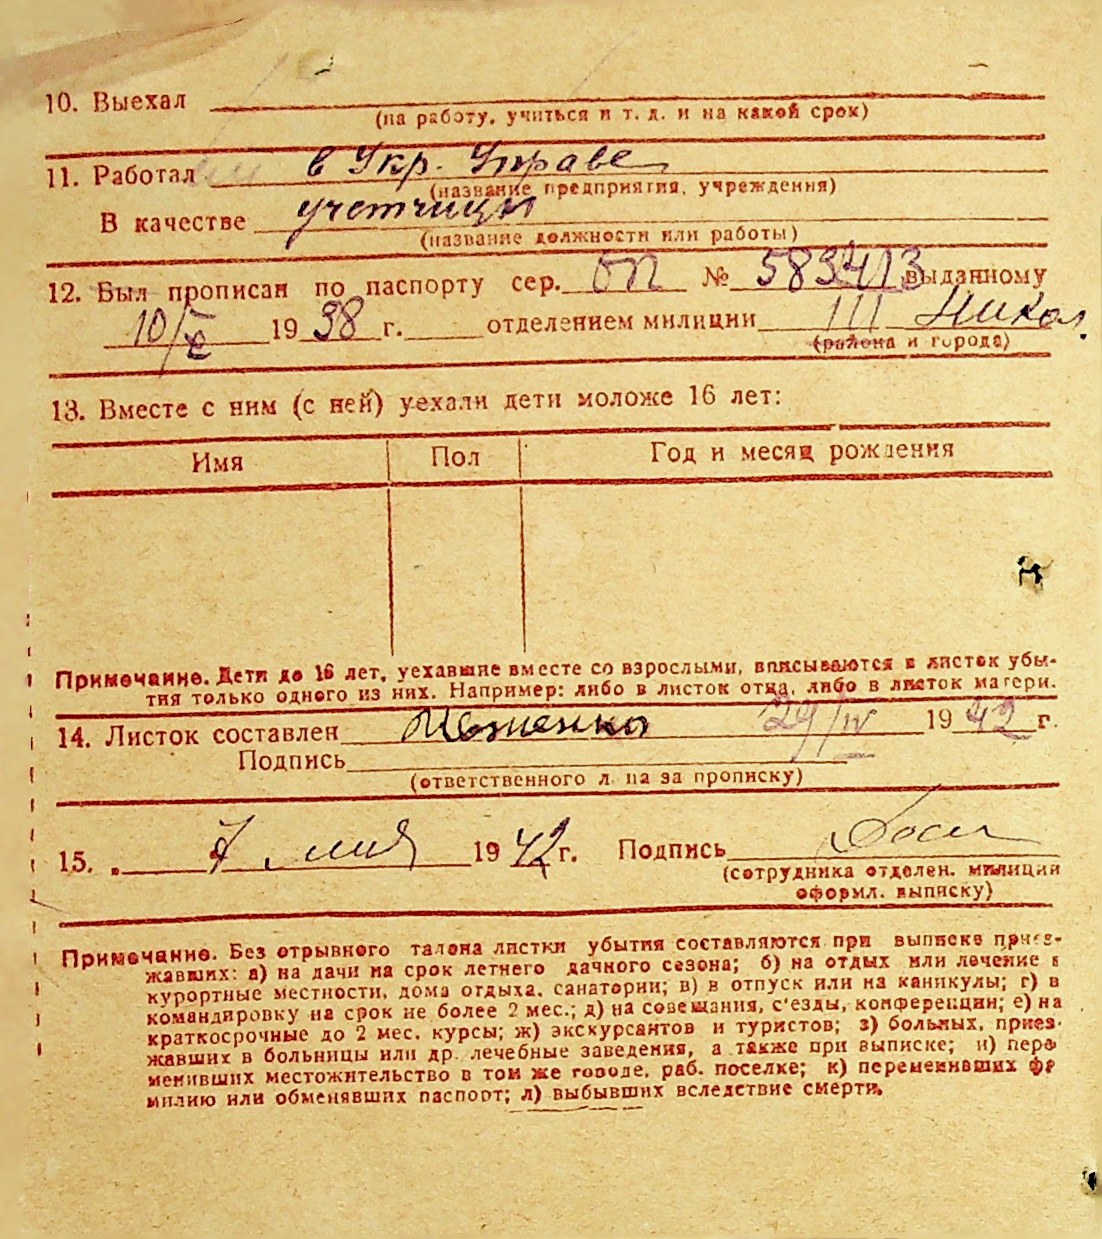 10. Выехал
(на работу, учиться и т. д. и на какой срок)
11. Работал в Укр. Управе
(название предприятия, учреждения)
В качестве учетчицы
(название должности или работы)
12. Был прописан по паспорту сер. ОП № 583413 выданному
10/X 1938 г. отделением милиции III Никол.
(района и города)
13. Вместе с ним (с ней) уехали дети моложе 16 лет:
Имя Пол Год и месяц рождения
Примечание. Дети до 16 лет, уехавшие вместе со взрослыми, вписываются в листок убы-
тия только одного из них. Например: либо в листок отца, либо в листок матери.
14. Листок составлен 29/IV 1942 г.
Подпись
(ответственного лица за прописку)
15. 7 мая 1942 г. Подпись
(сотрудника отделен. милиции
оформл. выписку)
Примечание. Без отрывного талона листки убытия составляются при выписке приез-
жавших: а) на дачи на срок летнего дачного сезона; б) на отдых или лечение в
курортные местности, дома отдыха, санатории; в) в отпуск или на каникулы; г) в
командировку на срок не более 2 мес.; д) на совещания, с'езды, конференции; е) на
краткосрочные до 2 мес. курсы; ж) экскурсантов и туристов; з) больных, приез-
жавших в больницы или др. лечебные заведения, а также при выписке; и) пере
менивших местожительство в том же городе, раб. поселке; к) переменивших фа
милию или обменявших паспорт; л) выбывших вследствие смерти.